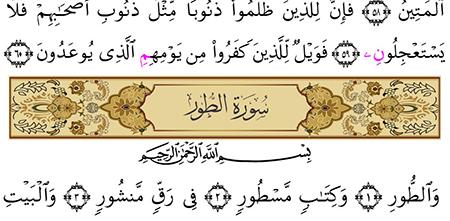 ٱلْمَتِينُ ﴿٥٨﴾ فَإِنَّ لِلَّذِينَ ظَلَمُوا۟ ذَنُوبًا مِّثْلَ ذَنُوبِ أَصْحَٰبِهِمْ فَلَا
يَسْتَعْجِلُونِ ﴿٥٩﴾ فَوَيْلٌ لِّلَّذِينَ كَفَرُوا۟ مِن يَوْمِهِمُ ٱلَّذِى يُوعَدُونَ ﴿٦٠﴾
سُورَةُ الطُّورِ
بِسْمِ ٱللَّهِ ٱلرَّحْمَٰنِ ٱلرَّحِيمِ
وَٱلطُّورِ ﴿١﴾ وَكِتَٰبٍ مَّسْطُورٍ ﴿٢﴾ فِى رَقٍّ مَّنشُورٍ ﴿٣﴾ وَٱلْبَيْتِ